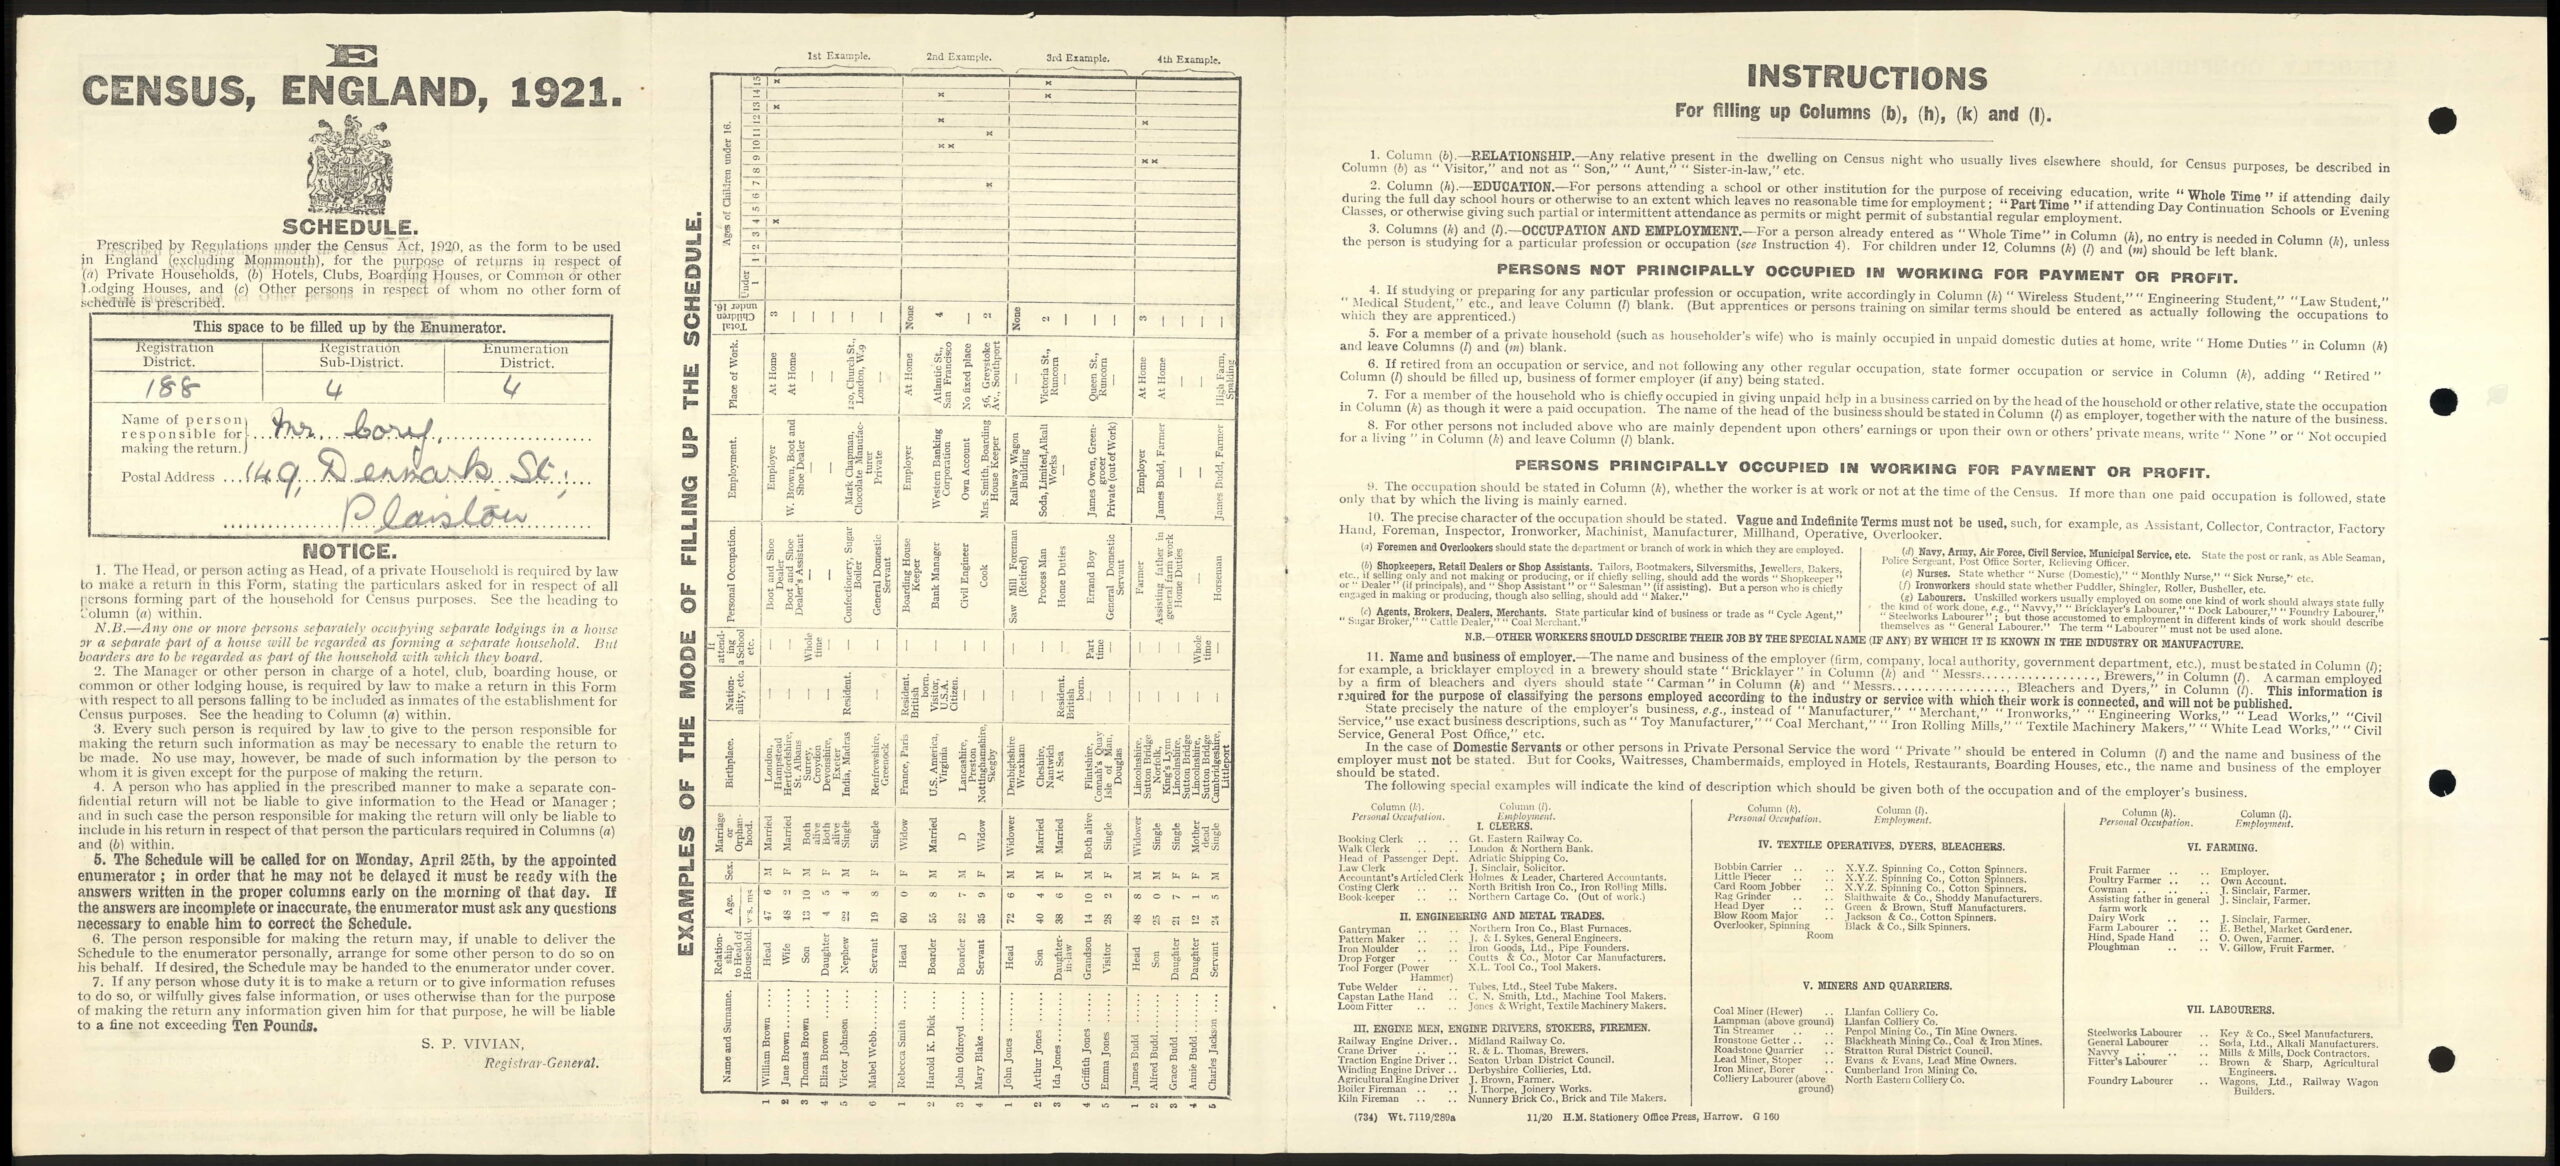 E
CENSUS, ENGLAND, 1921.
SCHEDULE.
Prescribed by Regulations under the Census Act, 1920, as the form to be used
in England (excluding Monmouth), for the purpose of returns in respect of
(a) Private Households, (b) Hotels, Clubs, Boarding Houses, or Common or other
Lodging Houses, and (c) Other persons in respect of whom no other form of
schedule is prescribed.
This space to be filled up by the Enumerator.
Registration District. Registration Sub-District. Enumeration District.
188 4 4
Name of person
responsible for
making the return.
Mr. Cory.
Postal Address 149, Denmark St.,
Plaistow
NOTICE.
1. The Head, or person acting as Head, of a private Household is required by law
to make a return in this Form, stating the particulars asked for in respect of all
persons forming part of the household for Census purposes. See the heading to
Column (a) within.
N.B.—Any one or more persons separately occupying separate lodgings in a house
or a separate part of a house will be regarded as forming a separate household. But
boarders are to be regarded as part of the household with which they board.
2. The Manager or other person in charge of a hotel, club, boarding house, or
common or other lodging house, is required by law to make a return in this Form
with respect to all persons falling to be included as inmates of the establishment for
Census purposes. See the heading to Column (a) within.
3. Every such person is required by law to give to the person responsible for
making the return such information as may be necessary to enable the return to
be made. No use may, however, be made of such information by the person to
whom it is given except for the purpose of making the return.
4. A person who has applied in the prescribed manner to make a separate con-
fidential return will not be liable to give information to the Head or Manager ;
and in such case the person responsible for making the return will only be liable to
include in his return in respect of that person the particulars required in Columns (a)
and (b) within.
5. The Schedule will be called for on Monday, April 25th, by the appointed
enumerator ; in order that he may not be delayed it must be ready with the
answers written in the proper columns early on the morning of that day. If
the answers are incomplete or inaccurate, the enumerator must ask any questions
necessary to enable him to correct the Schedule.
6. The person responsible for making the return may, if unable to deliver the
Schedule to the enumerator personally, arrange for some other person to do so on
his behalf. If desired, the Schedule may be handed to the enumerator under cover.
7. If any person whose duty it is to make a return or to give information refuses
to do so, or wilfully gives false information, or uses otherwise than for the purpose
of making the return any information given him for that purpose, he will be liable
to a fine not exceeding Ten Pounds.
S. P. VIVIAN,
Registrar-General.
EXAMPLES OF THE MODE OF FILLING UP THE SCHEDULE.
Name and Surname. Relationship to Head of Household. Age. Sex. Marriage or Orphanhood. Birthplace. Nationality, etc. If attending a School etc. Personal Occupation. Employment. Place of Work. Total Children under 16. Ages of Children under 16.
yrs. ms
Under 1 1 2 3 4 5 6 7 8 9 10 11 12 13 14 15
1st Example.
1 William Brown Head 47 6 M Married London, Hampstead — — Boot and Shoe Dealer Employer At Home 3 x x x
2 Jane Brown Wife 48 2 F Married Hertfordshire, St. Albans — — Boot and Shoe Dealer's Assistant W. Brown, Boot and Shoe Dealer At Home —
3 Thomas Brown Son 13 10 M Both alive Surrey, Croydon — Whole time — — — —
4 Eliza Brown Daughter 4 5 F Both alive Devonshire, Exeter — — — — — —
5 Victor Johnson Nephew 22 4 M Single India, Madras Resident. — Confectionery, Sugar Boiler Mark Chapman, Chocolate Manufacturer 120, Church St., London, W.9 —
6 Mabel Webb Servant 19 8 F Single Renfrewshire, Greenock — — General Domestic Servant Private — —
2nd Example.
1 Rebecca Smith Head 60 0 F Widow France, Paris Resident. British born. — Boarding House Keeper Employer At Home None
2 Harold K. Dick Boarder 55 8 M Married U.S. America, Virginia Visitor, U.S.A. Citizen. — Bank Manager Western Banking Corporation Atlantic St., San Francisco 4 x x x x
3 John Oldroyd Boarder 32 7 M D Lancashire, Preston — — Civil Engineer Own Account No fixed place —
4 Mary Blake Servant 35 9 F Widow Nottinghamshire, Skegby — — Cook Mrs. Smith, Boarding House Keeper 56, Greystoke Av., Southport 2 x x
3rd Example.
1 John Jones Head 72 6 M Widower Denbighshire Wrexham — — Saw Mill Foreman (Retired) Railway Wagon Building — None
2 Arthur Jones Son 40 4 M Married Cheshire, Nantwich — — Process Man Soda, Limited, Alkali Works Victoria St., Runcorn 2 x x
3 Ida Jones Daughter-in-law 38 6 F Married At Sea Resident. British born. — Home Duties — — —
4 Griffith Jones Grandson 14 10 M Both alive Flintshire, Connah's Quay — Part time Errand Boy James Owen, Greengrocer Queen St., Runcorn —
5 Emma Jones Visitor 28 2 F Single Isle of Man, Douglas — — General Domestic Servant Private (out of Work) — —
4th Example.
1 James Budd Head 48 8 M Widower Lincolnshire, Sutton Bridge — — Farmer Employer At Home 3 x x x
2 Alfred Budd Son 25 0 M Single Norfolk, King's Lynn — — Assisting father in general farm work James Budd, Farmer At Home —
3 Grace Budd Daughter 21 7 F Single Lincolnshire, Sutton Bridge — — Home Duties — — —
4 Annie Budd Daughter 12 1 F Mother dead Lincolnshire, Sutton Bridge — Whole time — — — —
5 Charles Jackson Servant 24 5 M Single Cambridgeshire, Littleport — — Horseman James Budd, Farmer High Farm, Spalding —
INSTRUCTIONS
For filling up Columns (b), (h), (k) and (l).
1. Column (b).—RELATIONSHIP.—Any relative present in the dwelling on Census night who usually lives elsewhere should, for Census purposes, be described in
Column (b) as "Visitor," and not as "Son," "Aunt," "Sister-in-law," etc.
2. Column (h).—EDUCATION.—For persons attending a school or other institution for the purpose of receiving education, write "Whole Time" if attending daily
during the full day school hours or otherwise to an extent which leaves no reasonable time for employment ; "Part Time" if attending Day Continuation Schools or Evening
Classes, or otherwise giving such partial or intermittent attendance as permits or might permit of substantial regular employment.
3. Columns (k) and (l).—OCCUPATION AND EMPLOYMENT.—For a person already entered as "Whole Time" in Column (h), no entry is needed in Column (k), unless
the person is studying for a particular profession or occupation (see Instruction 4). For children under 12, Columns (k) (l) and (m) should be left blank.
PERSONS NOT PRINCIPALLY OCCUPIED IN WORKING FOR PAYMENT OR PROFIT.
4. If studying or preparing for any particular profession or occupation, write accordingly in Column (k) "Wireless Student," "Engineering Student," "Law Student,"
"Medical Student," etc., and leave Column (l) blank. (But apprentices or persons training on similar terms should be entered as actually following the occupations to
which they are apprenticed.)
5. For a member of a private household (such as householder's wife) who is mainly occupied in unpaid domestic duties at home, write "Home Duties" in Column (k)
and leave Columns (l) and (m) blank.
6. If retired from an occupation or service, and not following any other regular occupation, state former occupation or service in Column (k), adding "Retired"
Column (l) should be filled up, business of former employer (if any) being stated.
7. For a member of the household who is chiefly occupied in giving unpaid help in a business carried on by the head of the household or other relative, state the occupation
in Column (k) as though it were a paid occupation. The name of the head of the business should be stated in Column (l) as employer, together with the nature of the business.
8. For other persons not included above who are mainly dependent upon others' earnings or upon their own or others' private means, write "None" or "Not occupied
for a living" in Column (k) and leave Column (l) blank.
PERSONS PRINCIPALLY OCCUPIED IN WORKING FOR PAYMENT OR PROFIT.
9. The occupation should be stated in Column (k), whether the worker is at work or not at the time of the Census. If more than one paid occupation is followed, state
only that by which the living is mainly earned.
10. The precise character of the occupation should be stated. Vague and Indefinite Terms must not be used, such, for example, as Assistant, Collector, Contractor, Factory
Hand, Foreman, Inspector, Ironworker, Machinist, Manufacturer, Millhand, Operative, Overlooker.
(a) Foremen and Overlookers should state the department or branch of work in which they are employed.
(b) Shopkeepers, Retail Dealers or Shop Assistants. Tailors, Bootmakers, Silversmiths, Jewellers, Bakers,
etc., if selling only and not making or producing, or if chiefly selling, should add the words "Shopkeeper"
or "Dealer" (if principals), and "Shop Assistant" or "Salesman" (if assisting). But a person who is chiefly
engaged in making or producing, though also selling, should add "Maker."
(c) Agents, Brokers, Dealers, Merchants. State particular kind of business or trade as "Cycle Agent,"
"Sugar Broker," "Cattle Dealer," "Coal Merchant."
(d) Navy, Army, Air Force, Civil Service, Municipal Service, etc. State the post or rank, as Able Seaman,
Police Sergeant, Post Office Sorter, Relieving Officer.
(e) Nurses. State whether "Nurse (Domestic)," "Monthly Nurse," "Sick Nurse," etc.
(f) Ironworkers should state whether Puddler, Shingler, Roller, Busheller, etc.
(g) Labourers. Unskilled workers usually employed on some one kind of work should always state fully
the kind of work done, e.g., "Navvy," "Bricklayer's Labourer," "Dock Labourer," "Foundry Labourer,"
"Steelworks Labourer" ; but those accustomed to employment in different kinds of work should describe
themselves as "General Labourer." The term "Labourer" must not be used alone.
N.B.—OTHER WORKERS SHOULD DESCRIBE THEIR JOB BY THE SPECIAL NAME (IF ANY) BY WHICH IT IS KNOWN IN THE INDUSTRY OR MANUFACTURE.
11. Name and business of employer.—The name and business of the employer (firm, company, local authority, government department, etc.), must be stated in Column (l);
for example, a bricklayer employed in a brewery should state "Bricklayer" in Column (k) and "Messrs..............., Brewers," in Column (l). A carman employed
by a firm of bleachers and dyers should state "Carman" in Column (k) and "Messrs..............., Bleachers and Dyers," in Column (l). This information is
required for the purpose of classifying the persons employed according to the industry or service with which their work is connected, and will not be published.
State precisely the nature of the employer's business, e.g., instead of "Manufacturer," "Merchant," "Ironworks," "Engineering Works," "Lead Works," "Civil
Service," use exact business descriptions, such as "Toy Manufacturer," "Coal Merchant," "Iron Rolling Mills," "Textile Machinery Makers," "White Lead Works," "Civil
Service, General Post Office," etc.
In the case of Domestic Servants or other persons in Private Personal Service the word "Private" should be entered in Column (l) and the name and business of the
employer must not be stated. But for Cooks, Waitresses, Chambermaids, employed in Hotels, Restaurants, Boarding Houses, etc., the name and business of the employer
should be stated.
The following special examples will indicate the kind of description which should be given both of the occupation and of the employer's business.
Column (k). Personal Occupation. Column (l). Employment.
I. CLERKS.
Booking Clerk .. .. Gt. Eastern Railway Co.
Walk Clerk .. .. London & Northern Bank.
Head of Passenger Dept. Adriatic Shipping Co.
Law Clerk .. .. J. Sinclair, Solicitor.
Accountant's Articled Clerk Holmes & Leader, Chartered Accountants.
Costing Clerk .. .. North British Iron Co., Iron Rolling Mills.
Book-keeper .. .. Northern Cartage Co. (Out of work.)
II. ENGINEERING AND METAL TRADES.
Gantryman .. .. Northern Iron Co., Blast Furnaces.
Pattern Maker .. .. J. & I. Sykes, General Engineers.
Iron Moulder .. .. Iron Goods, Ltd., Pipe Founders.
Drop Forger .. .. Coutts & Co., Motor Car Manufacturers.
Tool Forger (Power Hammer) X.L. Tool Co., Tool Makers.
Tube Welder .. .. Tubes, Ltd., Steel Tube Makers.
Capstan Lathe Hand .. C. N. Smith, Ltd., Machine Tool Makers.
Loom Fitter .. .. Jones & Wright, Textile Machinery Makers.
III. ENGINE MEN, ENGINE DRIVERS, STOKERS, FIREMEN.
Railway Engine Driver .. Midland Railway Co.
Crane Driver .. .. R. & L. Thomas, Brewers.
Traction Engine Driver .. Seaton Urban District Council.
Winding Engine Driver .. Derbyshire Collieries, Ltd.
Agricultural Engine Driver J. Brown, Farmer.
Boiler Fireman .. .. J. Thorpe, Joinery Works.
Kiln Fireman .. .. Nunnery Brick Co., Brick and Tile Makers.
Column (k). Personal Occupation. Column (l). Employment.
IV. TEXTILE OPERATIVES, DYERS, BLEACHERS.
Bobbin Carrier .. .. X.Y.Z. Spinning Co., Cotton Spinners.
Little Piecer .. .. X.Y.Z. Spinning Co., Cotton Spinners.
Card Room Jobber .. X.Y.Z. Spinning Co., Cotton Spinners.
Rag Grinder .. .. Slaithwaite & Co., Shoddy Manufacturers.
Head Dyer .. .. Green & Brown, Stuff Manufacturers.
Blow Room Major .. Jackson & Co., Cotton Spinners.
Overlooker, Spinning Room Black & Co., Silk Spinners.
V. MINERS AND QUARRIERS.
Coal Miner (Hewer) .. Llanfan Colliery Co.
Lampman (above ground) Llanfan Colliery Co.
Tin Streamer .. .. Penpol Mining Co., Tin Mine Owners.
Ironstone Getter .. .. Blackheath Mining Co., Coal & Iron Mines.
Roadstone Quarrier .. Stratton Rural District Council.
Lead Miner, Stoper .. Evans & Evans, Lead Mine Owners.
Iron Miner, Borer .. Cumberland Iron Mining Co.
Colliery Labourer (above ground) North Eastern Colliery Co.
Column (k). Personal Occupation. Column (l). Employment.
VI. FARMING.
Fruit Farmer .. .. Employer.
Poultry Farmer .. .. Own Account.
Cowman .. .. J. Sinclair, Farmer.
Assisting father in general farm work J. Sinclair, Farmer.
Dairy Work .. .. J. Sinclair, Farmer.
Farm Labourer .. .. E. Bethel, Market Gardener.
Hind, Spade Hand .. O. Owen, Farmer.
Ploughman .. .. V. Gillow, Fruit Farmer.
VII. LABOURERS.
Steelworks Labourer .. Key & Co., Steel Manufacturers.
General Labourer .. Soda, Ltd., Alkali Manufacturers.
Navvy .. .. Mills & Mills, Dock Contractors.
Fitter's Labourer .. Brown & Sharp, Agricultural Engineers.
Foundry Labourer .. Wagons, Ltd., Railway Wagon Builders.
(734) Wt. 7119/289a 11/20 H.M. Stationery Office Press, Harrow. G 160